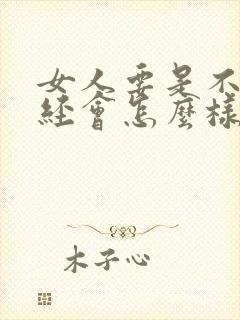 女人要是不
經會怎麼樣
木子心